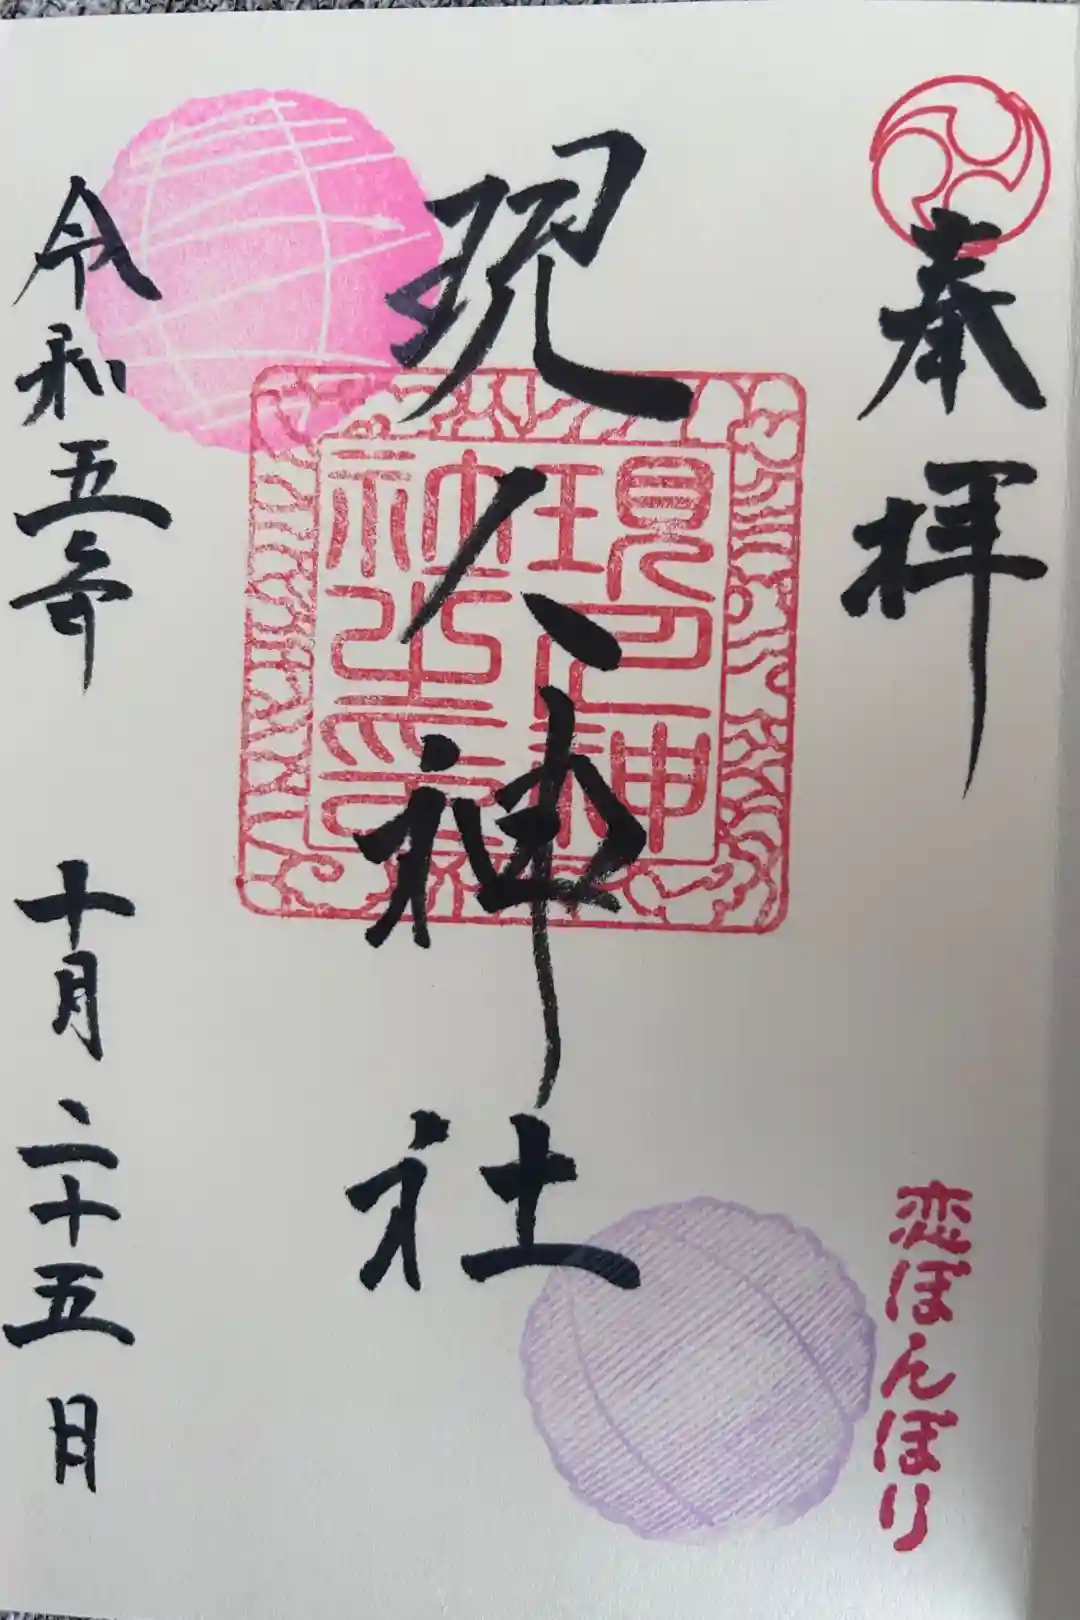 奉拝
恋ぼんぼり
現人神社
現人神
社之印
令和五年 十月二十五日